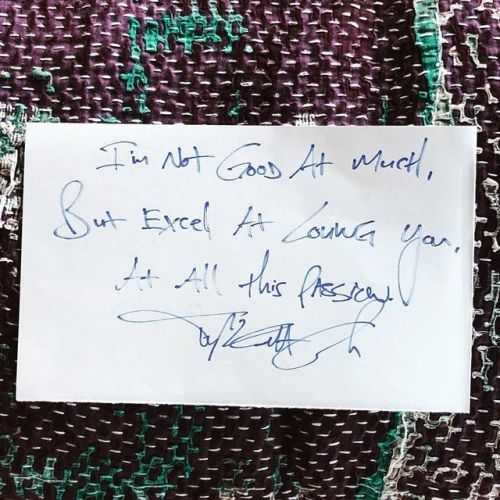 I'm Not Good At Much,
But Excel At Loving You.
At All this Passion.